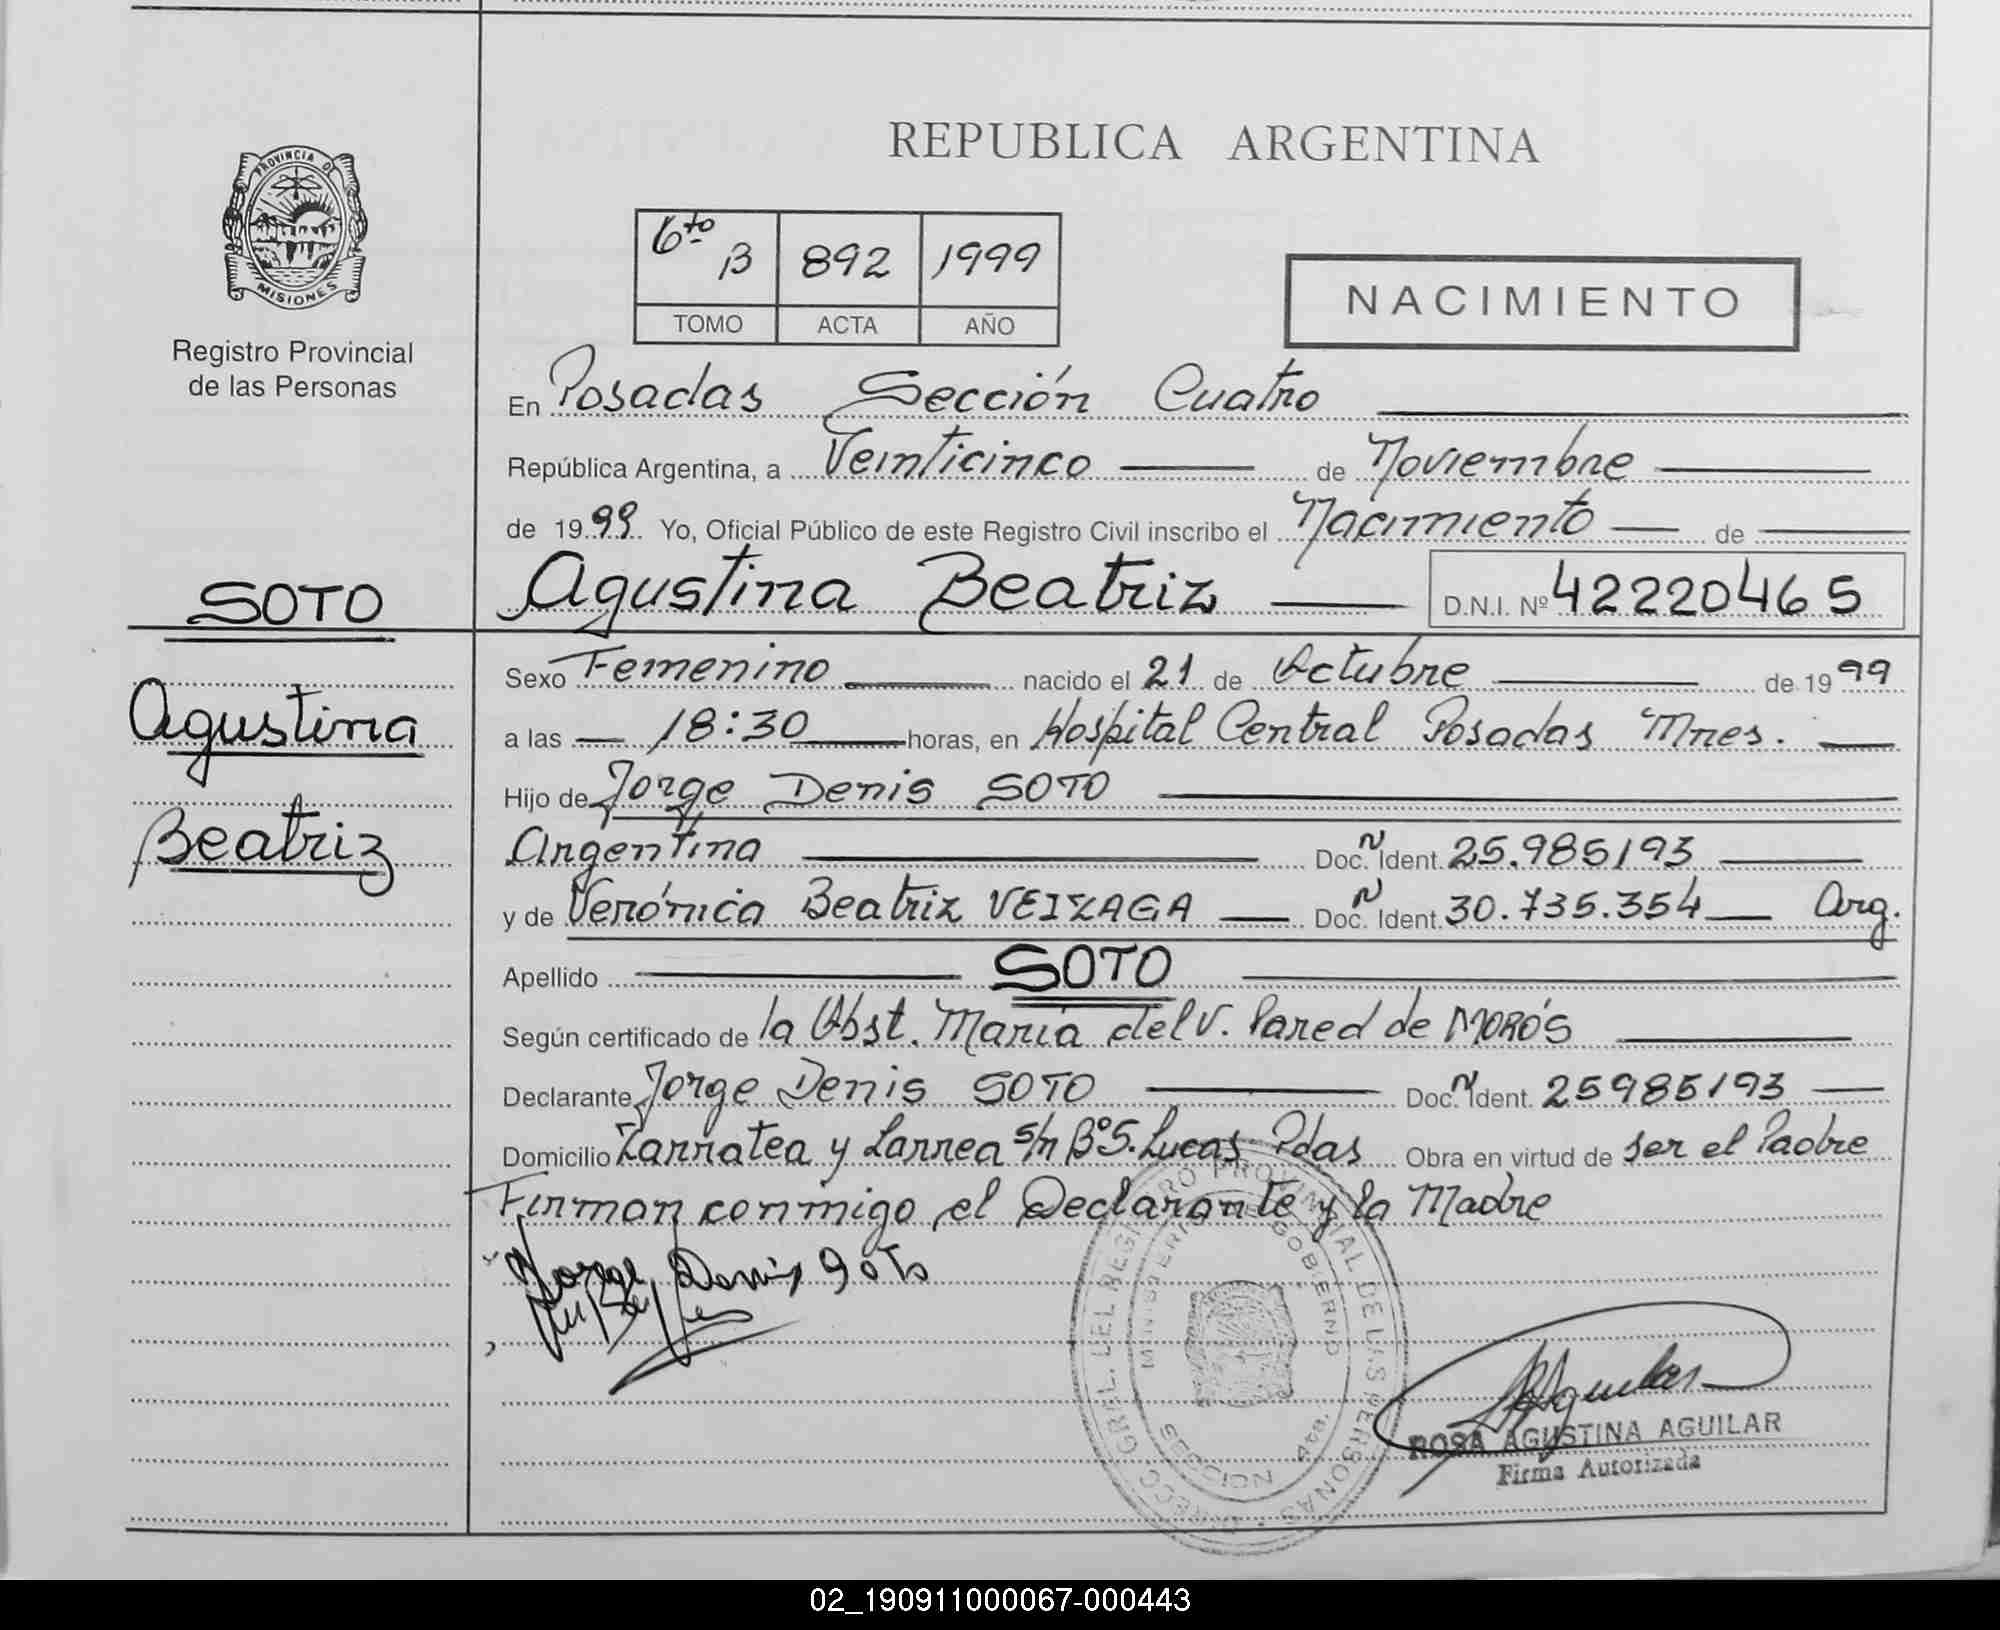 REPUBLICA ARGENTINA
PROVINCIA DE
MISIONES
Registro Provincial
de las Personas
6to B 892 1999
TOMO ACTA AÑO
NACIMIENTO
En Posadas Sección Cuatro
República Argentina, a Veinticinco de Noviembre
de 1999 Yo, Oficial Público de este Registro Civil inscribo el Nacimiento de
SOTO
Agustina Beatriz D.N.I. Nº 42220465
Agustina
Beatriz
Sexo Femenino nacido el 21 de Octubre de 1999
a las 18:30 horas, en Hospital Central Posadas Mnes.
Hijo de Jorge Denis SOTO
Argentina Doc. N Ident. 25.985193
y de Verónica Beatriz VEIZAGA Doc. N Ident. 30.735.354 Arg.
Apellido SOTO
Según certificado de la Obst. María del V. Pared de MORÓS
Declarante Jorge Denis SOTO Doc. N Ident. 25985193
Domicilio Zarratea y Larrea s/n Bº S. Lucas Pdas Obra en virtud de ser el Padre
Firman conmigo el Declarante y la Madre
Jorge Denis Soto
DIRECC. GRAL. DEL REGISTRO PROVINCIAL DE LAS PERSONAS
MINISTERIO DE GOBIERNO
SECCION 4ta.
ROSA AGUSTINA AGUILAR
Firma Autorizada
02_190911000067-000443